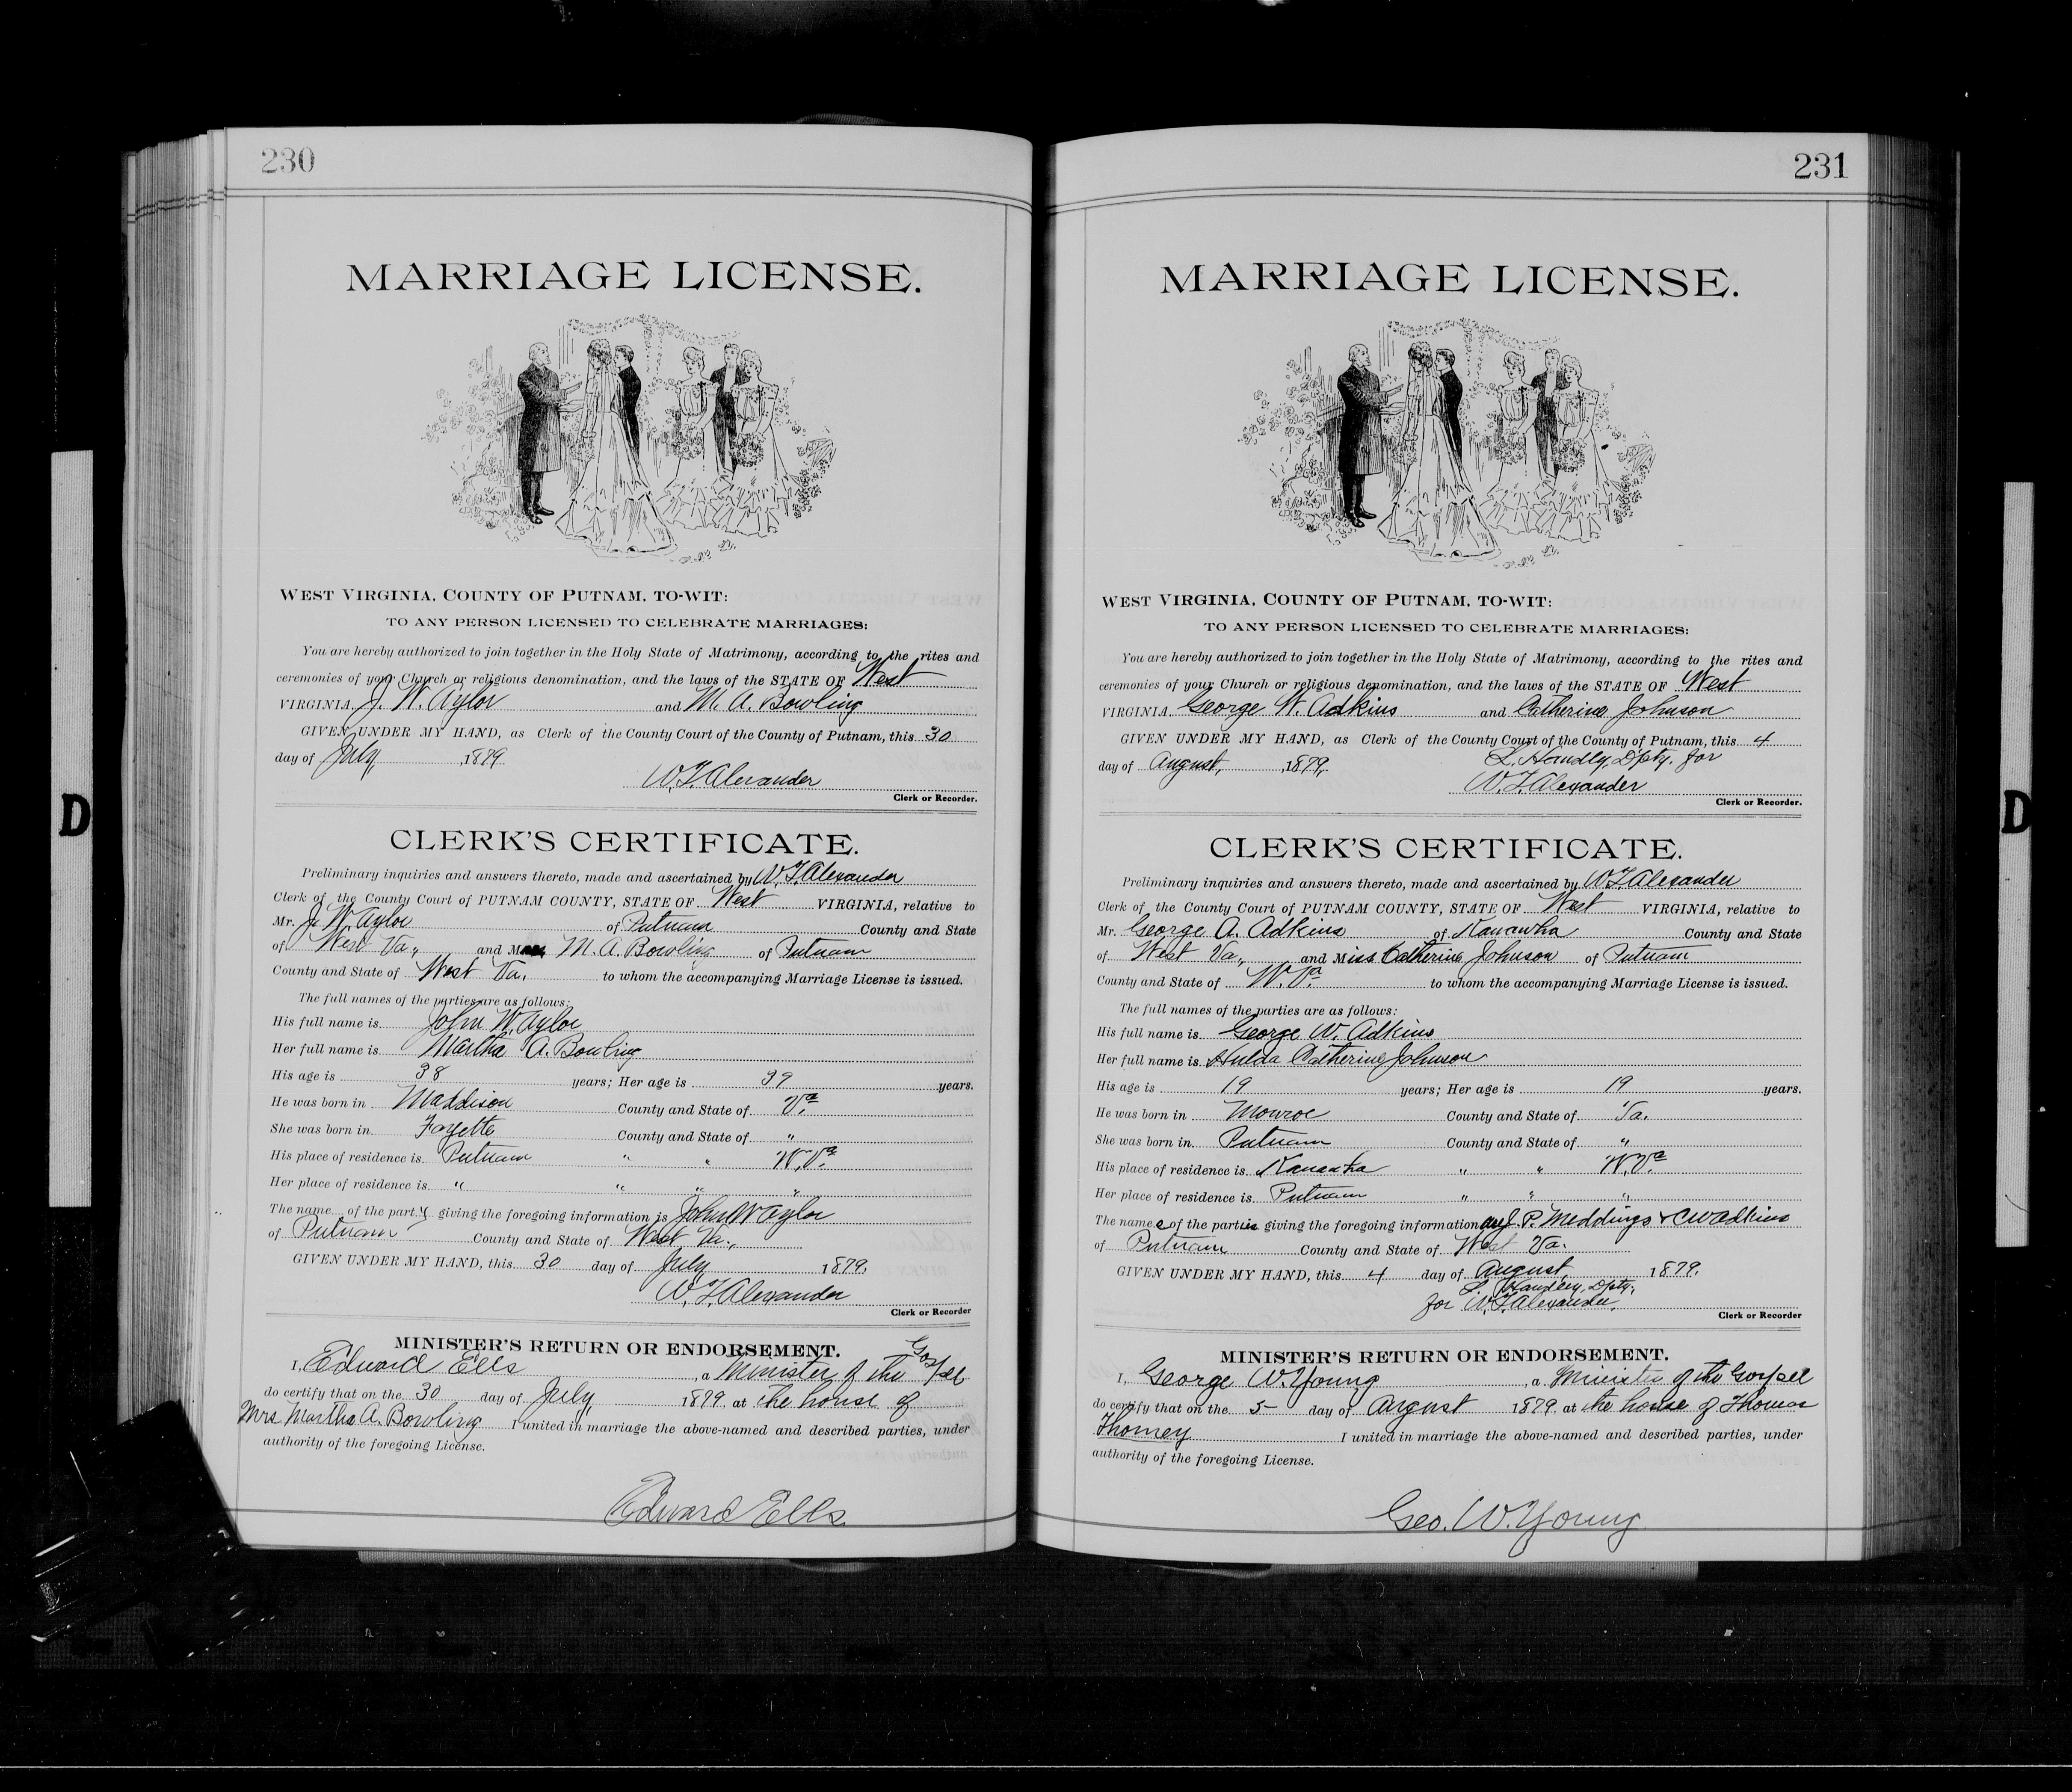 230
MARRIAGE LICENSE.
WEST VIRGINIA, COUNTY OF PUTNAM, TO-WIT:
TO ANY PERSON LICENSED TO CELEBRATE MARRIAGES:
You are hereby authorized to join together in the Holy State of Matrimony, according to the rites and
ceremonies of your Church or religious denomination, and the laws of the STATE OF West
VIRGINIA. J. W. Aylor and M. A. Bowling
GIVEN UNDER MY HAND, as Clerk of the County Court of the County of Putnam, this 30
day of July, 1879.
W. T. Alexander
Clerk or Recorder.
CLERK'S CERTIFICATE.
Preliminary inquiries and answers thereto, made and ascertained by W. T. Alexander
Clerk of the County Court of PUTNAM COUNTY, STATE OF West VIRGINIA, relative to
Mr. J. W. Aylor of Putnam County and State
of West Va., and M M. A. Bowling of Putnam
County and State of West Va. to whom the accompanying Marriage License is issued.
The full names of the parties are as follows:
His full name is John W. Aylor
Her full name is Martha A. Bowling
His age is 38 years; Her age is 39 years.
He was born in Maddison County and State of Va.
She was born in Fayette County and State of "
His place of residence is Putnam " " W. Va.
Her place of residence is " " " "
The name of the party giving the foregoing information is John W Aylor
of Putnam County and State of West Va.,
GIVEN UNDER MY HAND, this 30 day of July 1879.
W. T. Alexander
Clerk or Recorder
MINISTER'S RETURN OR ENDORSEMENT.
I, Edward Ells, a Minister of the Gospel
do certify that on the 30 day of July 1879 at the house of
Mrs Martha A. Bowling I united in marriage the above-named and described parties, under
authority of the foregoing License.
Edward Ells
231
MARRIAGE LICENSE.
WEST VIRGINIA, COUNTY OF PUTNAM, TO-WIT:
TO ANY PERSON LICENSED TO CELEBRATE MARRIAGES:
You are hereby authorized to join together in the Holy State of Matrimony, according to the rites and
ceremonies of your Church or religious denomination, and the laws of the STATE OF West
VIRGINIA. George W. Adkins and Catherine Johnson
GIVEN UNDER MY HAND, as Clerk of the County Court of the County of Putnam, this 4
day of August, 1879, L. Handly, Dpty. for
W. T. Alexander
Clerk or Recorder.
CLERK'S CERTIFICATE.
Preliminary inquiries and answers thereto, made and ascertained by W. T. Alexander
Clerk of the County Court of PUTNAM COUNTY, STATE OF West VIRGINIA, relative to
Mr. George A. Adkins of Kanawha County and State
of West Va., and Miss Catherine Johnson of Putnam
County and State of W. Va. to whom the accompanying Marriage License is issued.
The full names of the parties are as follows:
His full name is George W. Adkins
Her full name is Hulda Catherine Johnson
His age is 19 years; Her age is 19 years.
He was born in Monroe County and State of Va.
She was born in Putnam County and State of "
His place of residence is Kanawha " " W. Va.
Her place of residence is Putnam " " "
The names of the parties giving the foregoing information are J. P. Meddings & C W Adkins
of Putnam County and State of West Va.
GIVEN UNDER MY HAND, this 4 day of August, 1879.
L. Handley, Dpty,
for W. T. Alexander.
Clerk or Recorder
MINISTER'S RETURN OR ENDORSEMENT.
I, George W. Young, a Minister of the Gospel
do certify that on the 5 day of August 1879 at the house of Thomas
Thorney I united in marriage the above-named and described parties, under
authority of the foregoing License.
Geo. W. Young
D
D